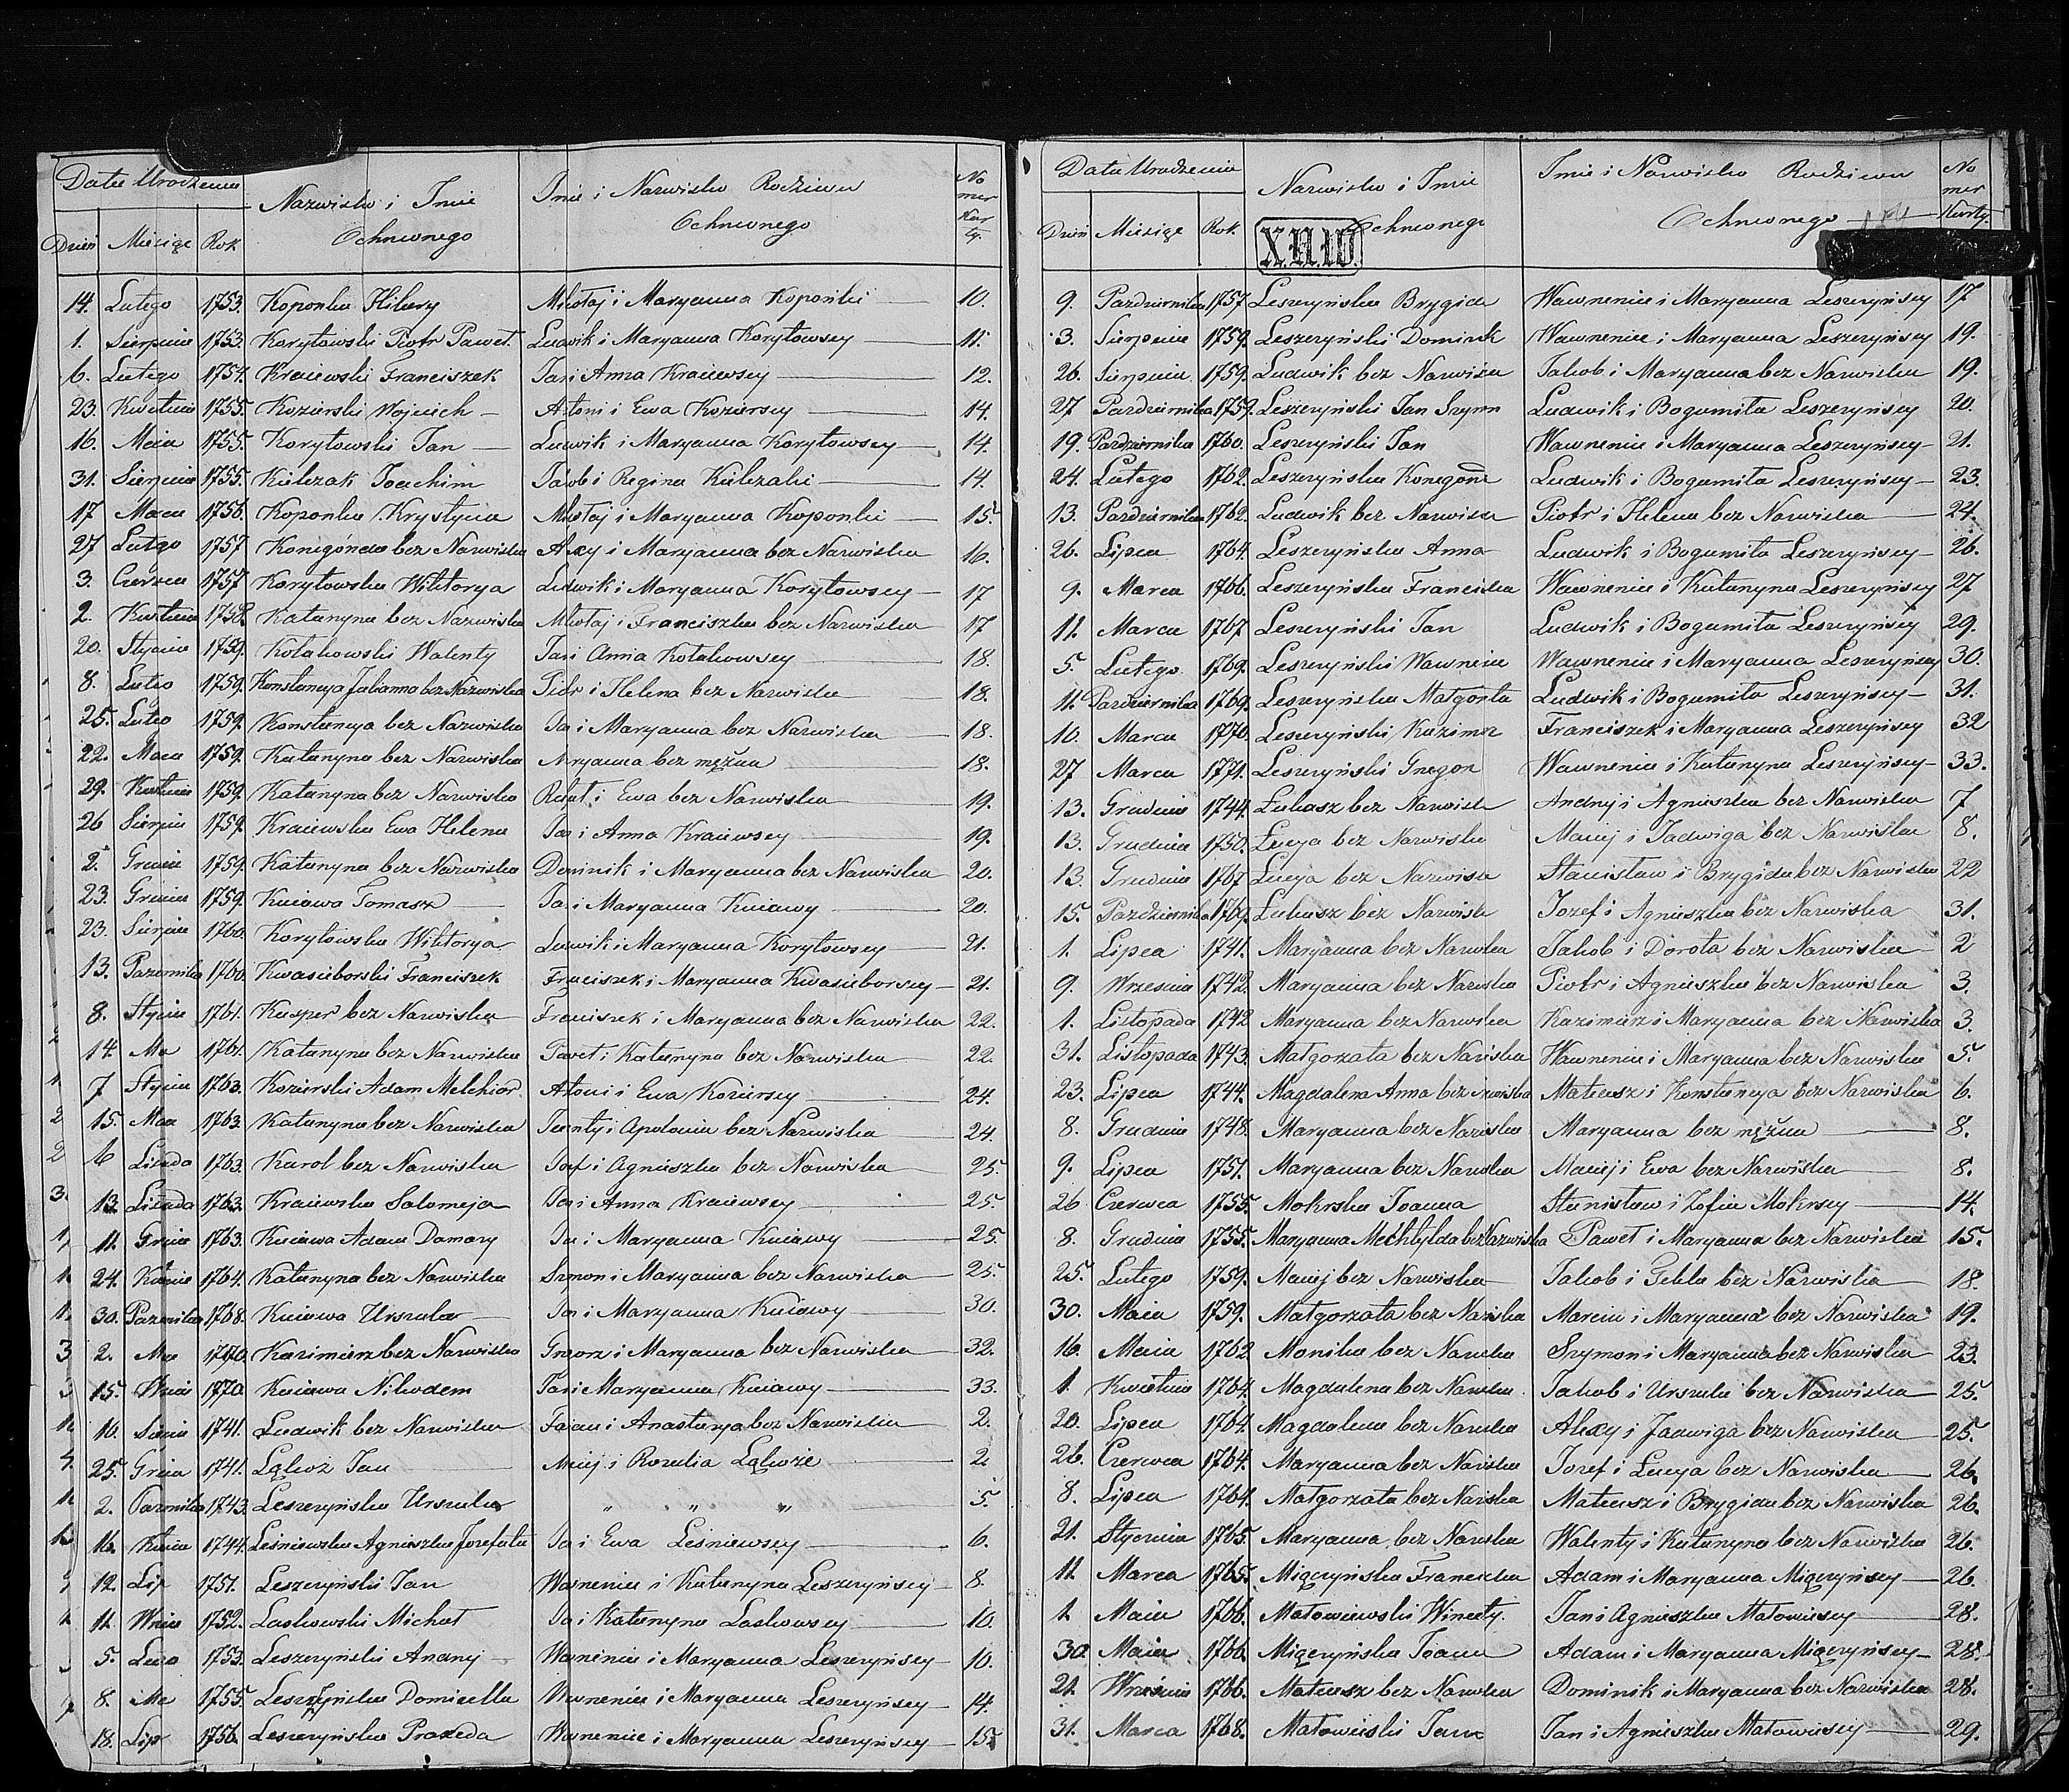 Data Urodzenia
Nazwisko i Imie
Ochrzconego
Imie i Nazwisko Rodziców
Ochrzconego
No
mer
Kar
ty.
Dzień Miesiąc Rok
14. Lutego 1753. Koponka Hilary Mikołaj i Maryanna Kopońki 10.
1. Sierpnia 1753. Korytowski Piotr Paweł Ludwik i Maryanna Korytowscy 11.
6. Lutego 1754. Kraiewski Franciszek Jan i Anna Kraiewscy 12.
23. Kwietnia 1755. Kozierski Wojciech Antoni i Ewa Kozierscy 14.
16. Maia 1755. Korytowski Jan Ludwik i Maryanna Korytowscy 14.
31. Sierpnia 1755. Kulczak Joachim Jakób i Regina Kulczaki 14.
17 Marca 1756. Koponka Krystyna Mikołaj i Maryanna Koponki 15.
27 Lutego 1757 Konegónda bez Nazwiska Alexy i Maryanna bez Nazwiska 16.
3. Czerwca 1757 Korytowska Wiktorya Ludwik i Maryanna Korytowscy 17
2. Kwietnia 1758. Katarzyna bez Nazwiska Mikołaj i Franciszka bez Nazwiska 17
20. Stycznia 1759. Kołakowski Walenty Jan i Anna Kołakowscy 18.
8. Lutego 1759. Konstancya Julianna bez Nazwiska Piotr i Helena bez Nazwiska 18.
25. Lutego 1759. Konstancya bez Nazwiska Jan i Maryanna bez Nazwiska 18.
22. Marca 1759. Katarzyna bez Nazwiska Maryanna bez mężna 18.
29. Kwietnia 1759. Katarzyna bez Nazwiska i Ewa bez Nazwiska 19.
26 Sierpnia 1759. Kraiewska Ewa Helena Jan i Anna Kraiewscy 19.
2. Grudnia 1759. Katarzyna bez Nazwiska Dominik i Maryanna bez Nazwiska 20.
23. Grudnia 1759. Kuiawa Tomasz Jan i Maryanna Kuiawy 20.
23. Sierpnia 1760. Korytowska Wiktorya Ludwik i Maryanna Korytowscy 21.
13. Pazdziernika 1760. Kwasieborski Franciszek Franciszek i Maryanna Kwasieborscy 21.
8. Stycznia 1761. Kasper bez Nazwiska Franciszek i Maryanna bez Nazwiska 22.
14. 1761. Katarzyna bez Nazwiska Paweł i Katarzyna bez Nazwiska 22.
7 Stycznia 1763. Kozierski Adam Melchior Antoni i Ewa Kozierscy 24.
15. Marca 1763. Katarzyna bez Nazwiska i Apolonia bez Nazwiska 24.
6 Listopada 1763. Karol bez Nazwiska Józef i Agnieszka bez Nazwiska 25.
13. Listopada 1763. Kraiewska Salomeja Jan i Anna Kraiewscy 25.
11. Grudnia 1763. Kuiawa Adam Damazy Jan i Maryanna Kuiawy 25.
24. Kwietnia 1764. Katarzyna bez Nazwiska Szymon i Maryanna bez Nazwiska 25.
30. Pazdziernika 1768. Kuiawa Urszula Jan i Maryanna Kuiawy 30.
2. 1770. Kazimierz bez Nazwiska Grzegorz i Maryanna bez Nazwiska 32.
15. Września 1770. Kuiawa Nikodem Jan i Maryanna Kuiawy 33.
10. Sierpnia 1741. Ludwik bez Nazwiska i Anastazya bez Nazwiska 2.
25. Grudnia 1741. Ląkoż Jan Maciej i Rozalia Ląkoże 2.
2. Pazdziernika 1743. Leszczyńska Urszula " " " 5.
16. Kwietnia 1744. Leśniewska Agnieszka Jozefata Jan i Ewa Leśniewscy 6.
12. Lip 1751. Leszczyński Jan Wawrzeniec i Katarzyna Leszczyńscy 8.
11. Września 1752. Laskowski Michał Jan i Katarzyna Laskowscy 10.
5. 1753. Leszczyński Andrzej Wawrzeniec i Maryanna Leszczyńscy 10.
8. 1755. Leszczyńska Domicella Wawrzeniec i Maryanna Leszczyńscy 14.
18. Lip 1756. Leszczyńska Praxeda Wawrzeniec i Maryanna Leszczyńscy 15.
Data Urodzenia
Nazwisko i Imie
Ochrzconego
Imie i Nazwisko Rodziców
Ochrzconego
No
mer
Karty.
Dzień Miesiąc Rok.
X.H.W.
9. Pazdziernika 1757. Leszczyńska Brygida Wawrzeniec i Maryanna Leszczyńscy 17
3. Sierpnia 1759. Leszczyński Dominik Wawrzeniec i Maryanna Leszczyńscy 19.
26. Sierpnia 1759. Ludwik bez Nazwiska Jakob i Maryanna bez Nazwiska 19.
27 Pazdziernika 1759. Leszczyński Jan Szymon Ludwik i Bogumiła Leszczyńscy 20.
19. Pazdziernika 1760. Leszczyński Jan Wawrzeniec i Maryanna Leszczyńscy 21.
24. Lutego 1762. Leszczyńska Konegond Ludwik i Bogumiła Leszczyńscy 23.
13. Pazdziernika 1762. Ludwik bez Nazwiska Piotr i Helena bez Nazwiska 24.
26. Lipca 1764. Leszczyńska Anna Ludwik i Bogumiła Leszczyńscy 26.
9. Marca 1766. Leszczyńska Franciszka Wawrzeniec i Katarzyna Leszczyńscy 27
11. Marca 1767 Leszczyński Jan Ludwik i Bogumiła Leszczyńscy 29.
5. Lutego 1769. Leszczyński Wawrzeniec Wawrzeniec i Maryanna Leszczyńscy 30.
11. Pazdziernika 1769. Leszczyńska Małgorzta Ludwik i Bogumiła Leszczyńscy 31.
10. Marca 1770. Leszczyński Kazimierz Franciszek i Maryanna Leszczyńscy 32
27 Marca 1771. Leszczyński Grzegorz Wawrzeniec i Katarzyna Leszczyńscy 33.
13. Grudnia 1744. Łukasz bez Nazwiska Andrzej i Agnieszka bez Nazwiska 7
13. Grudnia 1750. Łucya bez Nazwiska Maciej i Jadwiga bez Nazwiska 8.
13. Grudnia 1767 Łucya bez Nazwiska Stanisław i Brygida bez Nazwiska 22
15. Pazdziernika 1769. Łukasz bez Nazwiska Jozef i Agnieszka bez Nazwiska 31.
1. Lipca 1741. Maryanna bez Nazwiska Jakob i Dorota bez Nazwiska 2
9. Wrzesnia 1742. Maryanna bez Nazwiska Piotr i Agnieszka bez Nazwiska 3.
1. Listopada 1742 Maryanna bez Nazwiska Kazimierz i Maryanna bez Nazwiska 3.
31. Listopada 1743. Małgorzata bez Nazwiska Wawrzeniec i Maryanna bez Nazwiska 5.
23. Lipca 1744. Magdalena Anna bez Nazwiska Mateusz i Konstancya bez Nazwiska 6.
8. Grudnia 1748. Maryanna bez Nazwiska Maryanna bez mężna 8.
9. Lipca 1751. Maryanna bez Nazwiska Maciej i Ewa bez Nazwiska 8.
26 Czerwca 1755. Mokrska Joanna Stanisław i Zofia Mokrscy 14.
8. Grudnia 1755. Maryanna Mechtylda bez Nazwiska Paweł i Maryanna bez Nazwiska 15.
25. Lutego 1759. Maciej bez Nazwiska Jakob i bez Nazwiska 18.
30. Maia 1759. Małgorzata bez Nazwiska Marcin i Maryanna bez Nazwiska 19.
16. Maia 1762 Monika bez Nazwiska Szymon i Maryanna bez Nazwiska 23.
1. Kwietnia 1764. Magdalena bez Nazwiska Jakob i Urszula bez Nazwiska 25.
20. Lipca 1764. Magdalena bez Nazwiska Alexy i Jadwiga bez Nazwiska 25.
26. Czerwca 1764. Maryanna bez Nazwiska Jozef i Łucya bez Nazwiska 26.
8. Lipca 1764. Małgorzata bez Nazwiska Mateusz i Brygida bez Nazwiska 26.
21. Stycznia 1765. Maryanna bez Nazwiska Walenty i Katarzyna bez Nazwiska 26.
11. Marca 1765. Miączyńska Franciszka Adam i Maryanna Miączyńscy 26.
1. Maia 1766. Małowieski Wincenty Jan i Agnieszka Małowiescy 28.
30. Maia 1766. Miączyńska Joanna Adam i Maryanna Miączyńscy 28.
21. Września 1766. Mateusz bez Nazwiska Dominik i Maryanna bez Nazwiska 28.
31. Marca 1768. Małowieski Jan Jan i Agnieszka Małowiescy 29.